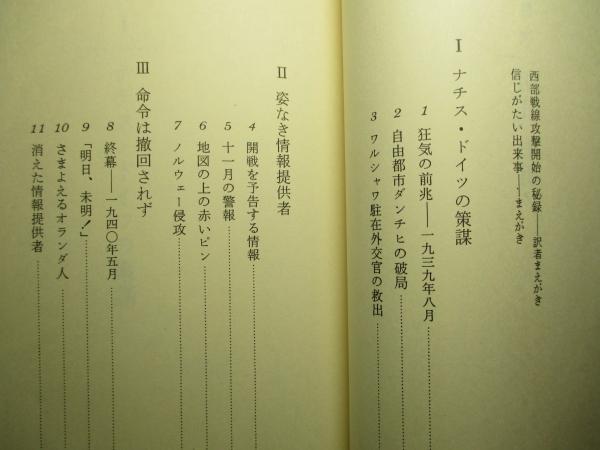 西部戦線攻撃開始の秘録――訳者まえがき
信じがたい出来事――まえがき
I ナチス・ドイツの策謀
1 狂気の前兆――一九三九年八月
2 自由都市ダンチヒの破局
3 ワルシャワ駐在外交官の救出
II 姿なき情報提供者
4 開戦を予告する情報
5 十一月の警報
6 地図の上の赤いピン
7 ノルウェー侵攻
III 命令は撤回されず
8 終幕――一九四〇年五月
9 「明日、未明!」
10 さまよえるオランダ人
11 消えた情報提供者